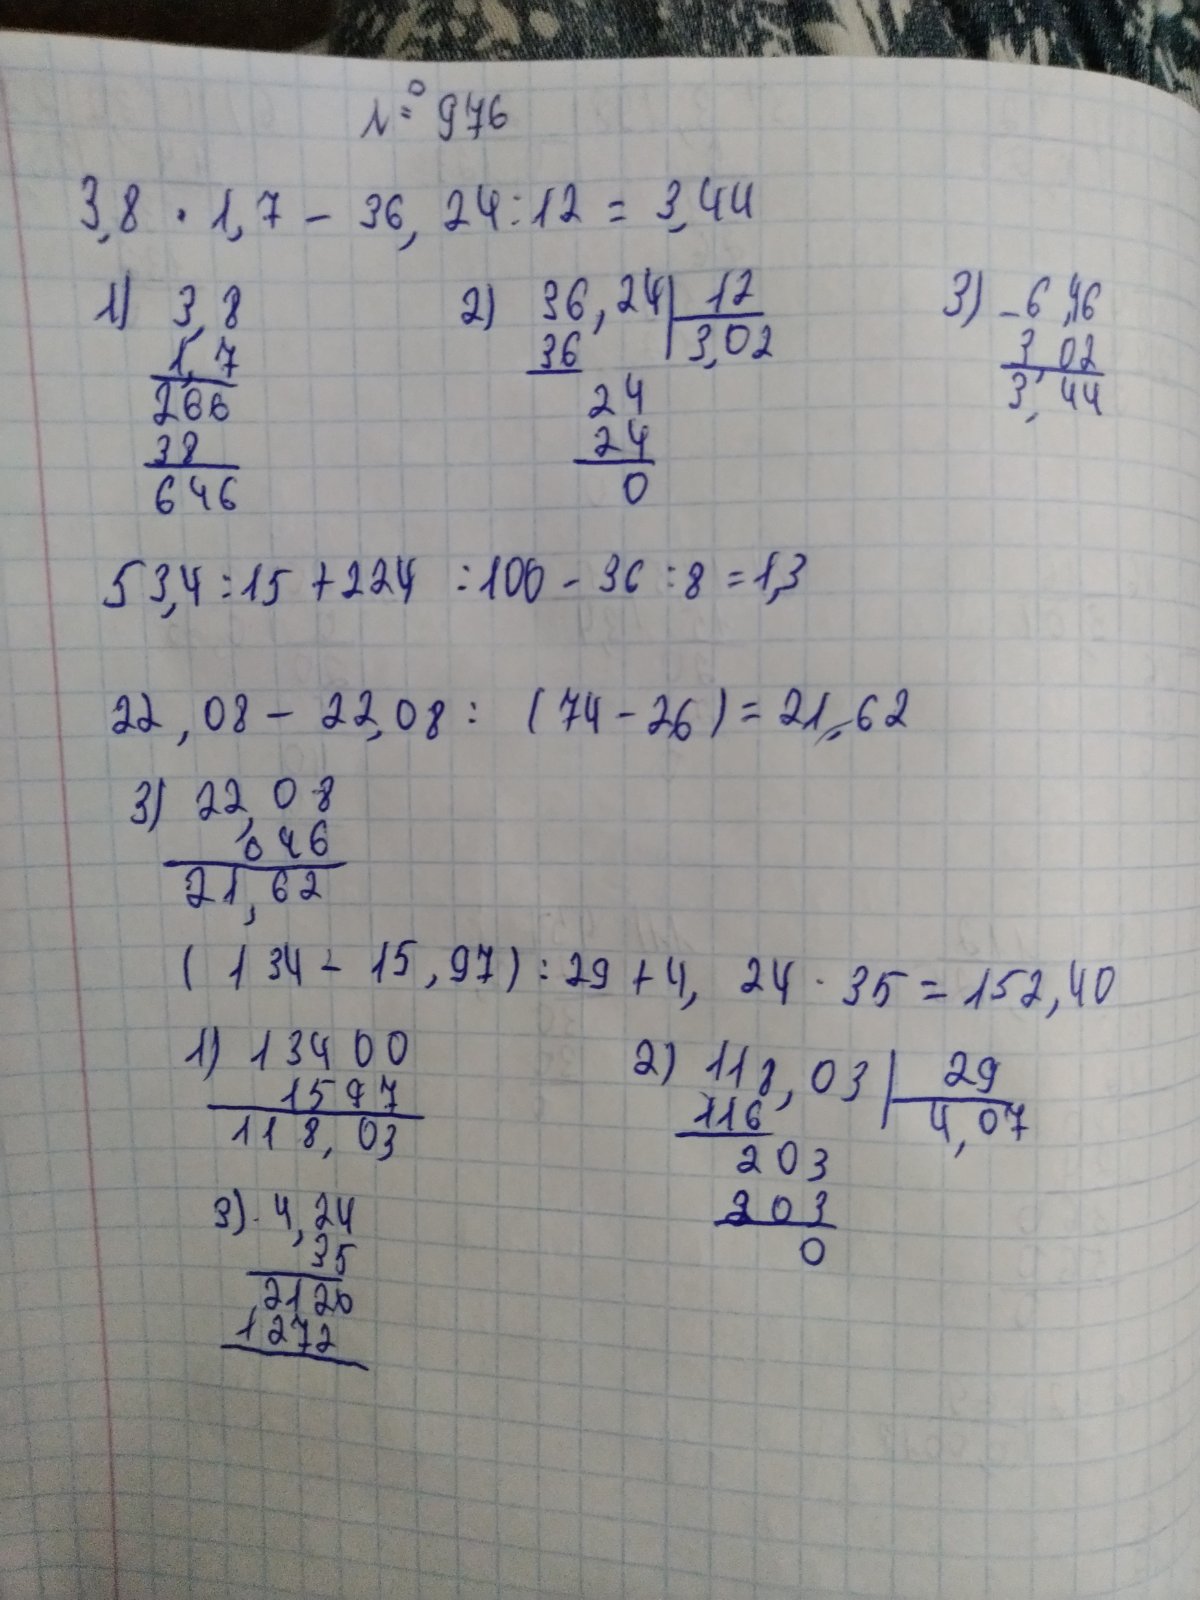 № 976
3,8 · 1,7 - 36,24 : 12 = 3,44
1) 3,8 2) 36,24 | 12 3) - 6,46
1,7 36 3,02 3,02
266 24 3,44
38 24
646 0
53,4 : 15 + 224 : 100 - 36 : 8 = 1,3
22,08 - 22,08 : (74 - 26) = 21,62
3) 22,08
0 46
21,62
(134 - 15,97) : 29 + 4,24 · 35 = 152,40
1) 13400 2) 118,03 | 29
1597 116 4,07
118,03 203
3) 4,24 203
35 0
2120
1272